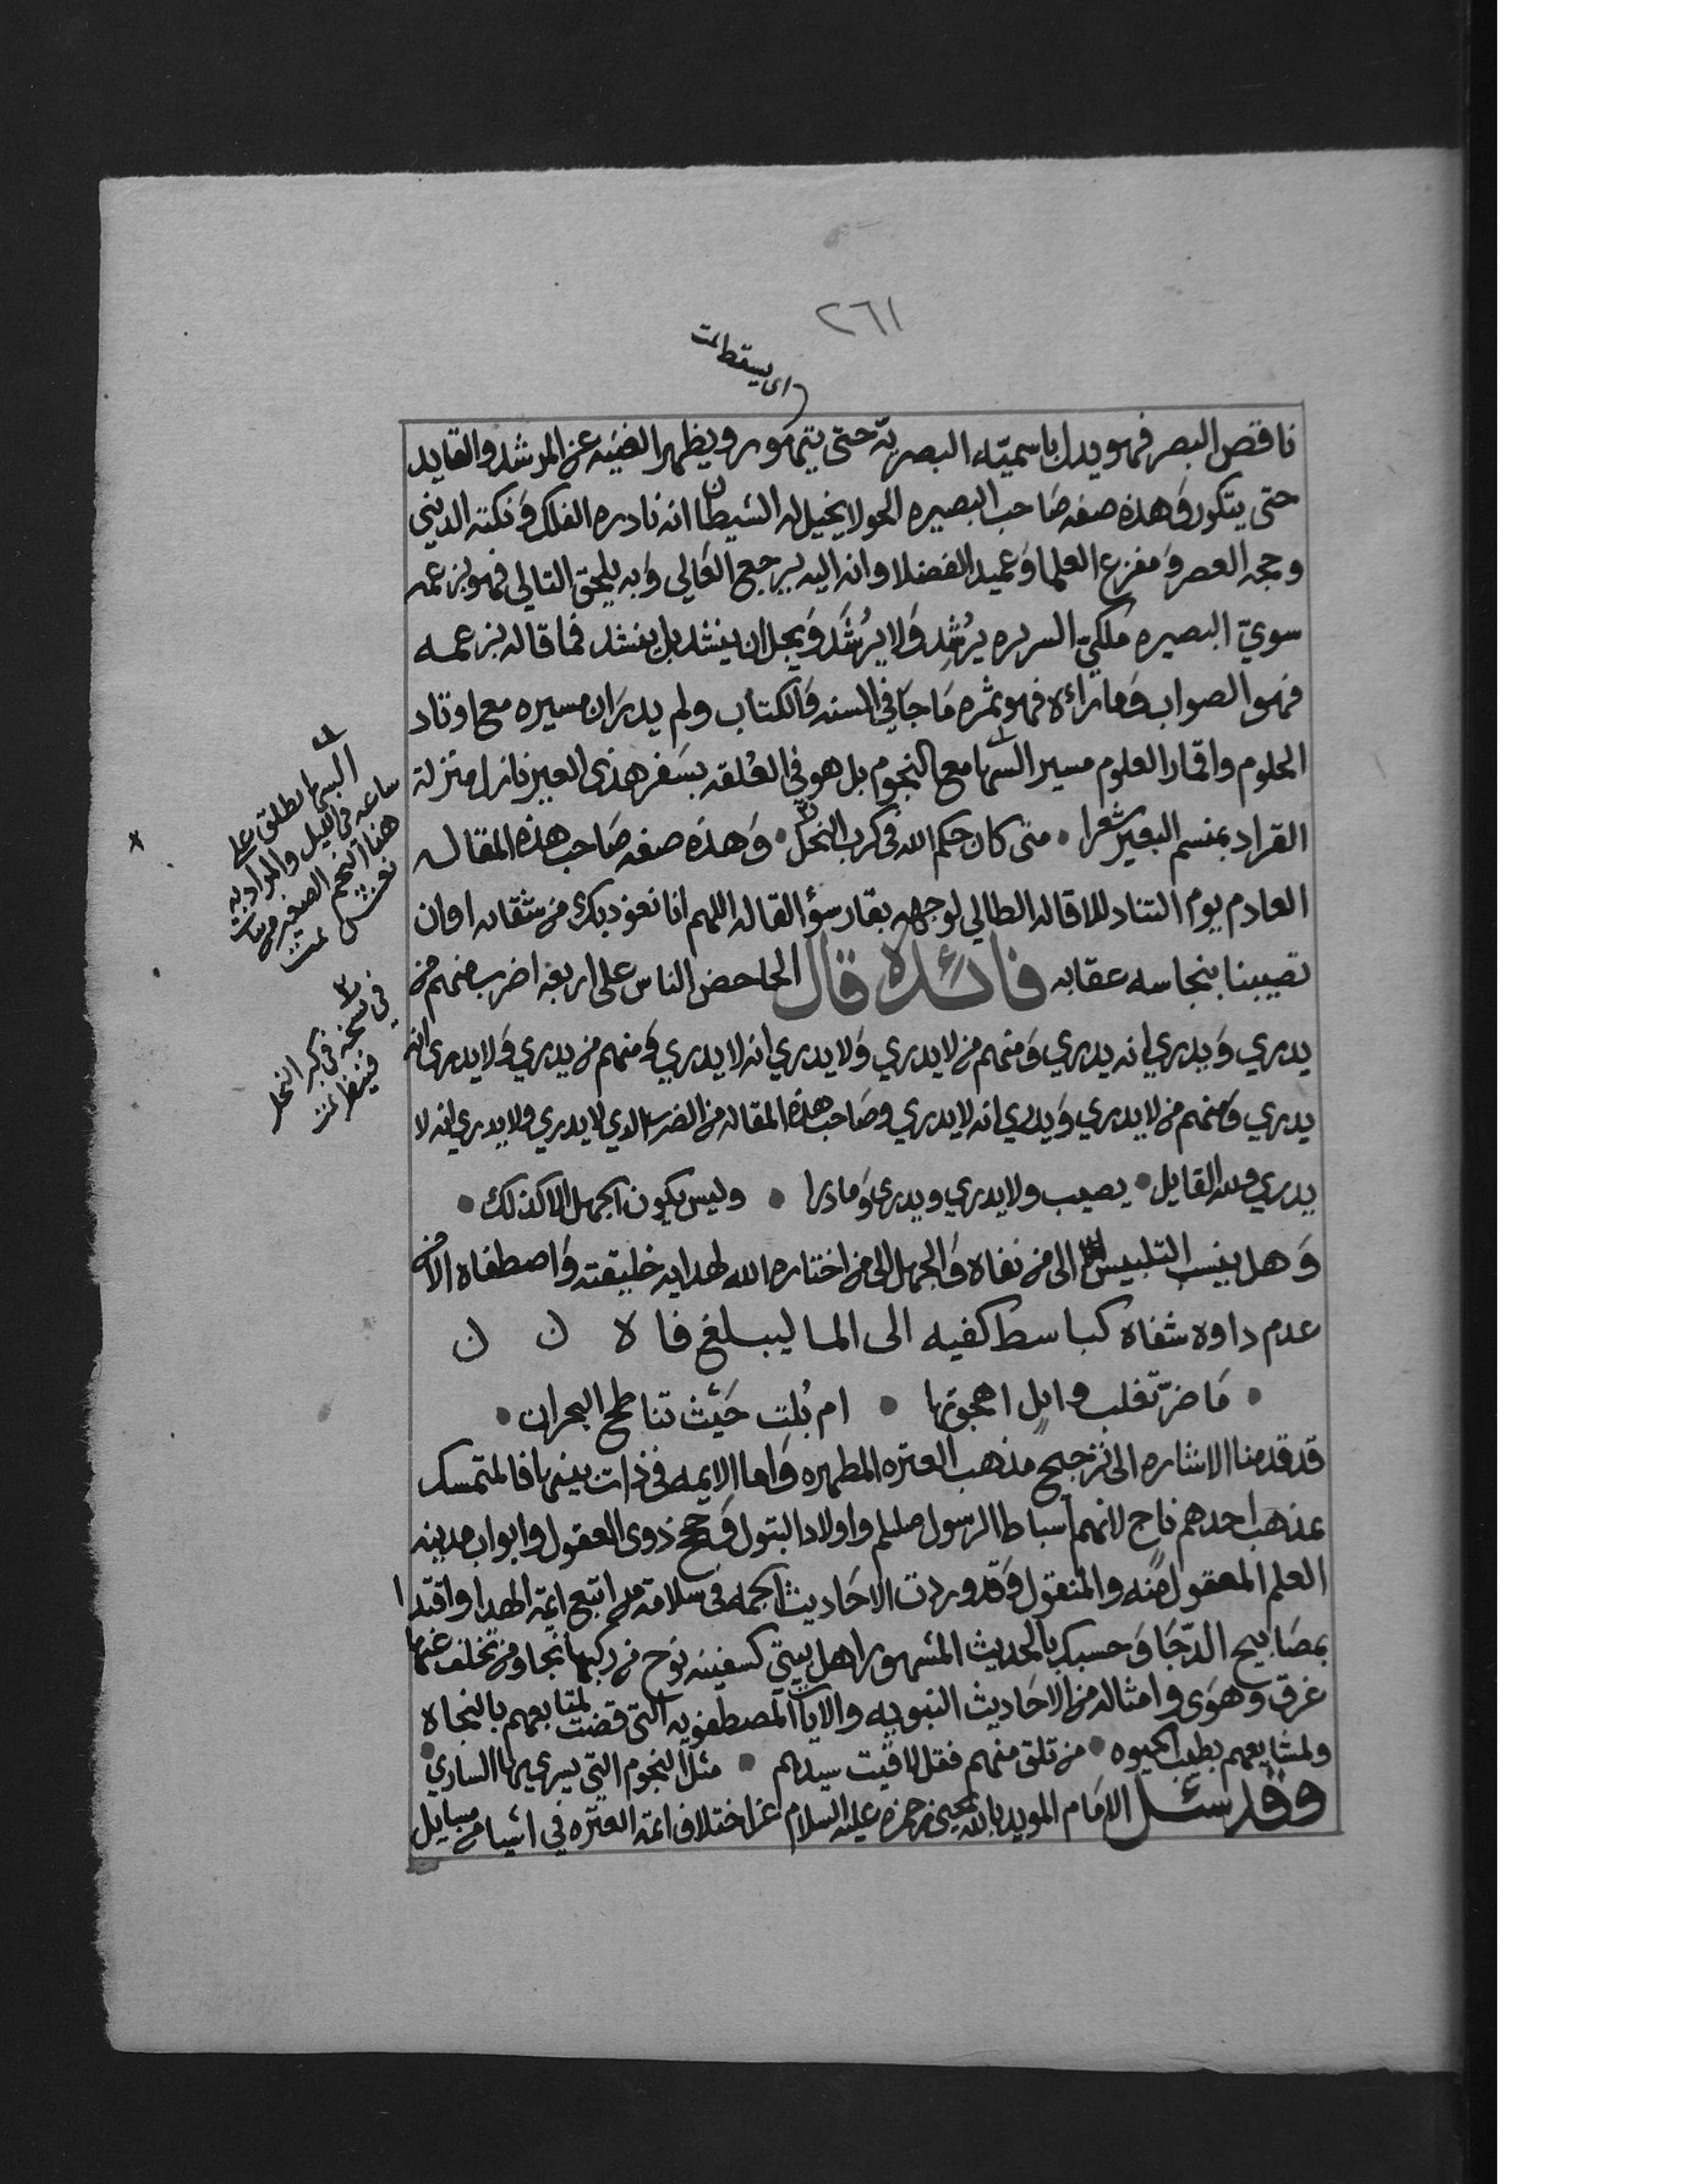 ٢٦١
اى يسقط تمت
ناقص البصر فهو يدل باسميته البصريه حتى يتهور ويظهر الغنيه عن المرشد والقايد
حتى يتكور وهذه صفه صاحب البصيره الحولا يخيل له الشيطان انه نادره الفلك ونكته الدنيى
وحجه العصر ومفزع العلما وعميد الفضلا وانه اليه يرجع الغالي وبه يلحق التالي فهو بزعمه
سويّ البصيره ملكيّ السريره يرُشِد ولا يرُشَد ويجل ان ينشد بل ينشد فما قاله بزعمه
فهو الصواب وما رائه فهو ثمره ما جا في السنه والكتاب ولم يدر ان مسيره مع اوتاد
الحلوم واقمار العلوم مسير السها مع النجوم بل هو في العُلقه بسفر هذى العير نازل منزلة
القراد بمنسم البعير شعرا • متى كان حكم الله في كرب النخل • وهذه صفه صاحب هذه المقاله
العادم يوم التناد للاقاله الطالي لوجهه بقار سؤ القاله اللهم انا نعوذ بك من شقائه اوان
تصيبنا بنجاسه عقابه فائدة قال الجاحض الناس على اربعه اضرب منهم من
يدري ويدري انه يدري ومنهم من لا يدري ولا يدري انه لا يدري ومنهم من يدري ولا يدري انه
يدري ومنهم من لا يدري ويدري انه لا يدري وصاحب هذه المقاله من الضرب الدي لا يدري ولا يدري انه لا
يدري ولله القايل • يصيب ولا يدري ويدرى وما درا • وليس يكون الجهل الا كذلك •
وهل ينسب التلبيس الى من نفاه والجهل الى من اختاره الله لهدايه خليقته واصطفاه الا من
عدم داوه شفاه كباسط كفيه الى الما ليبلغ فاه ن ن
• ما ضرّ تغلب وايل اهجوتها • ام بُلت حيث تناطح البحران •
قد قدمنا الاشاره الى ترجيح مذهب العتره المطهره واما الايمه في ذات بينها فالمتمسك
بمذهب احدهم ناج لانهم اسباط الرسول صلىلم واولاد البتول وحجج ذوى العقول وابواب مدينه
العلم المعقول منه والمنقول وقد وردت الاحاديث الجمه في سلامة من اتبع ايمة الهدا واقتدا
بمصابيح الدّجا وحسبك بالحديث المشهور اهل بيتي كسفينه نوح من ركبها نجا ومن تخلف عنها
غرق وهوى وامثاله من الاحاديث النبويه والايات المصطفويه التى قضت لمتابعهم بالنجاه
ولمشايعهم بطيب الحيوه • من تلق منهم فقل لاقيت سيدهم • مثل النجوم التي يسري بها الساري •
وقد سئل الامام المويد بالله يحيى بن حمزه عليه السلام عن اختلاف ائمة العتره في اشيا من مسايل
السها يطلق على
ساعه في الليل والمراد به
هنا النجم الصغير من بنات
نعش تمت
في نسخه في كبر النخل
فينظر تمت